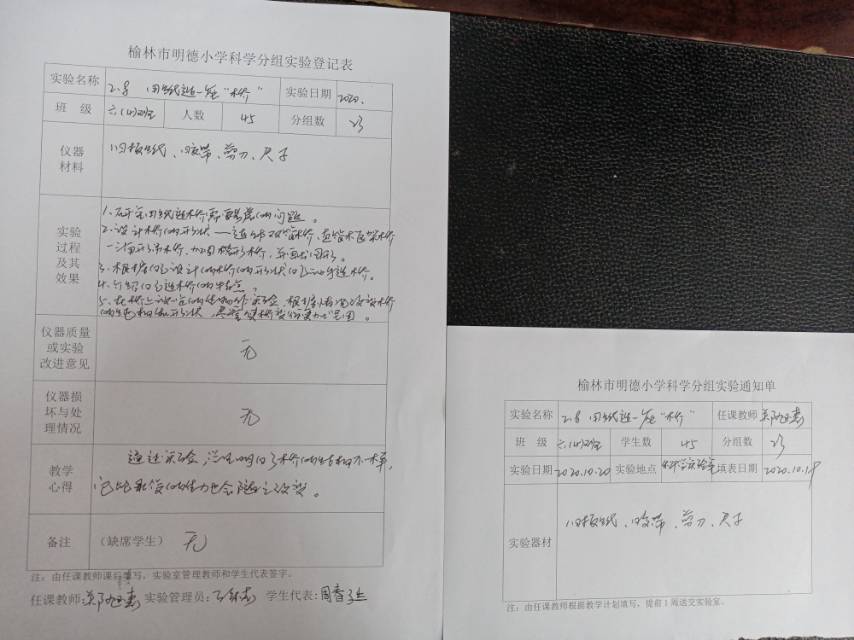 榆林市明德小学科学分组实验登记表
实验名称 2.8 用纸造一座“桥” 实验日期 2020.
班 级 六(4)班 人数 45 分组数 23
仪器材料 旧报纸、胶带、剪刀、尺子
实验过程及其效果
1. 研究用纸造桥需要考虑的问题。
2. 设计桥的形状
3. 根据自己设计的桥的形状自己动手造桥。
4. 介绍自己造桥的特点。
仪器质量或实验改进意见 无
仪器损坏与处理情况 无
教学心得
通过实验,学生明白了桥的结构不一样,
它所承受的能力也会随之改变。
备注 (缺席学生) 无
注:由任课教师课后填写,实验室管理教师和学生代表签字。
任课教师: 实验管理员: 学生代表:
榆林市明德小学科学分组实验通知单
实验名称 2.8 用纸造一座“桥” 任课教师
班 级 六(4)班 学生数 45 分组数 23
实验日期 2020.10.20 实验地点 科学实验室 填表日期 2020.10.19
实验器材 旧报纸、胶带、剪刀、尺子
注:由任课教师根据教学计划填写,提前1周送交实验室。